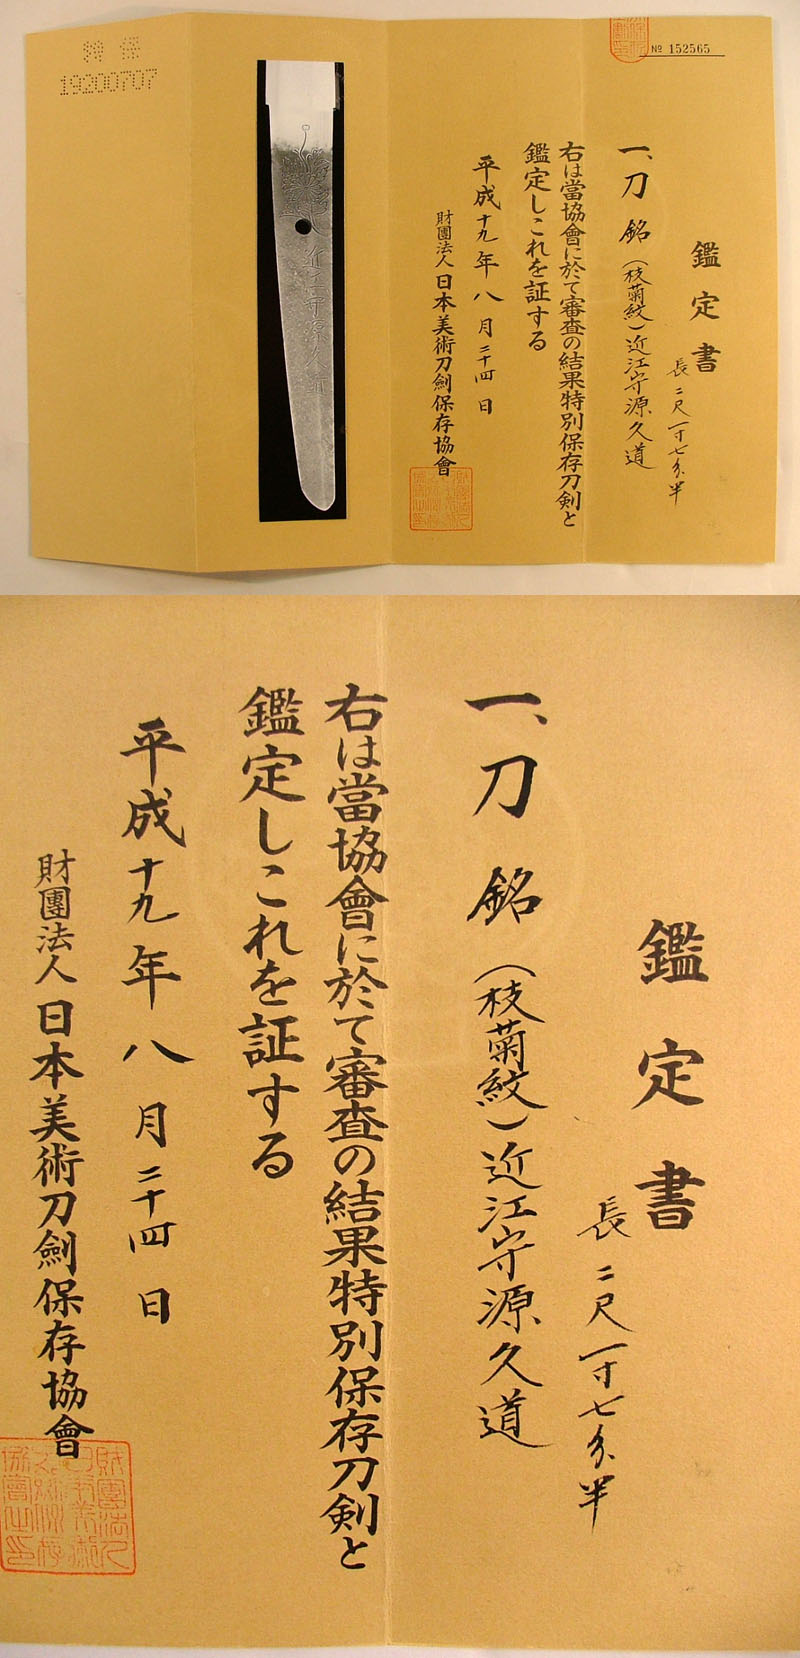 № 152565
鑑定書
長二尺一寸七分半
一、刀 銘（枝菊紋）近江守源久道
右は當協會に於て審査の結果特別保存刀剣と
鑑定しこれを証する
平成十九年八月二十四日
財團法人日本美術刀劍保存協會
近江守源久道
特保
19200707
鑑定書
長二尺一寸七分半
一、刀 銘（枝菊紋）近江守源久道
右は當協會に於て審査の結果特別保存刀剣と
鑑定しこれを証する
平成十九年八月二十四日
財團法人日本美術刀劍保存協會